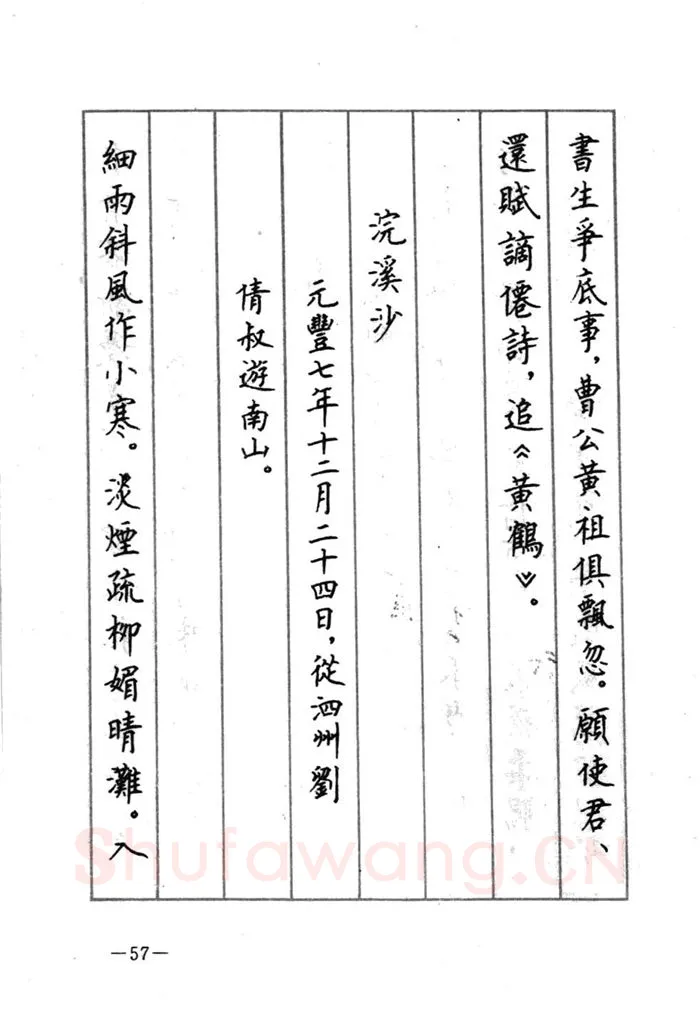 書生爭底事，曹公黃祖俱飄忽。願使君、
還賦謫僊詩，追《黃鶴》。
浣溪沙
元豐七年十二月二十四日，從泗州劉
倩叔遊南山。
細雨斜風作小寒。淡煙疏柳媚晴灘。入
—57—
Shufawang.CN